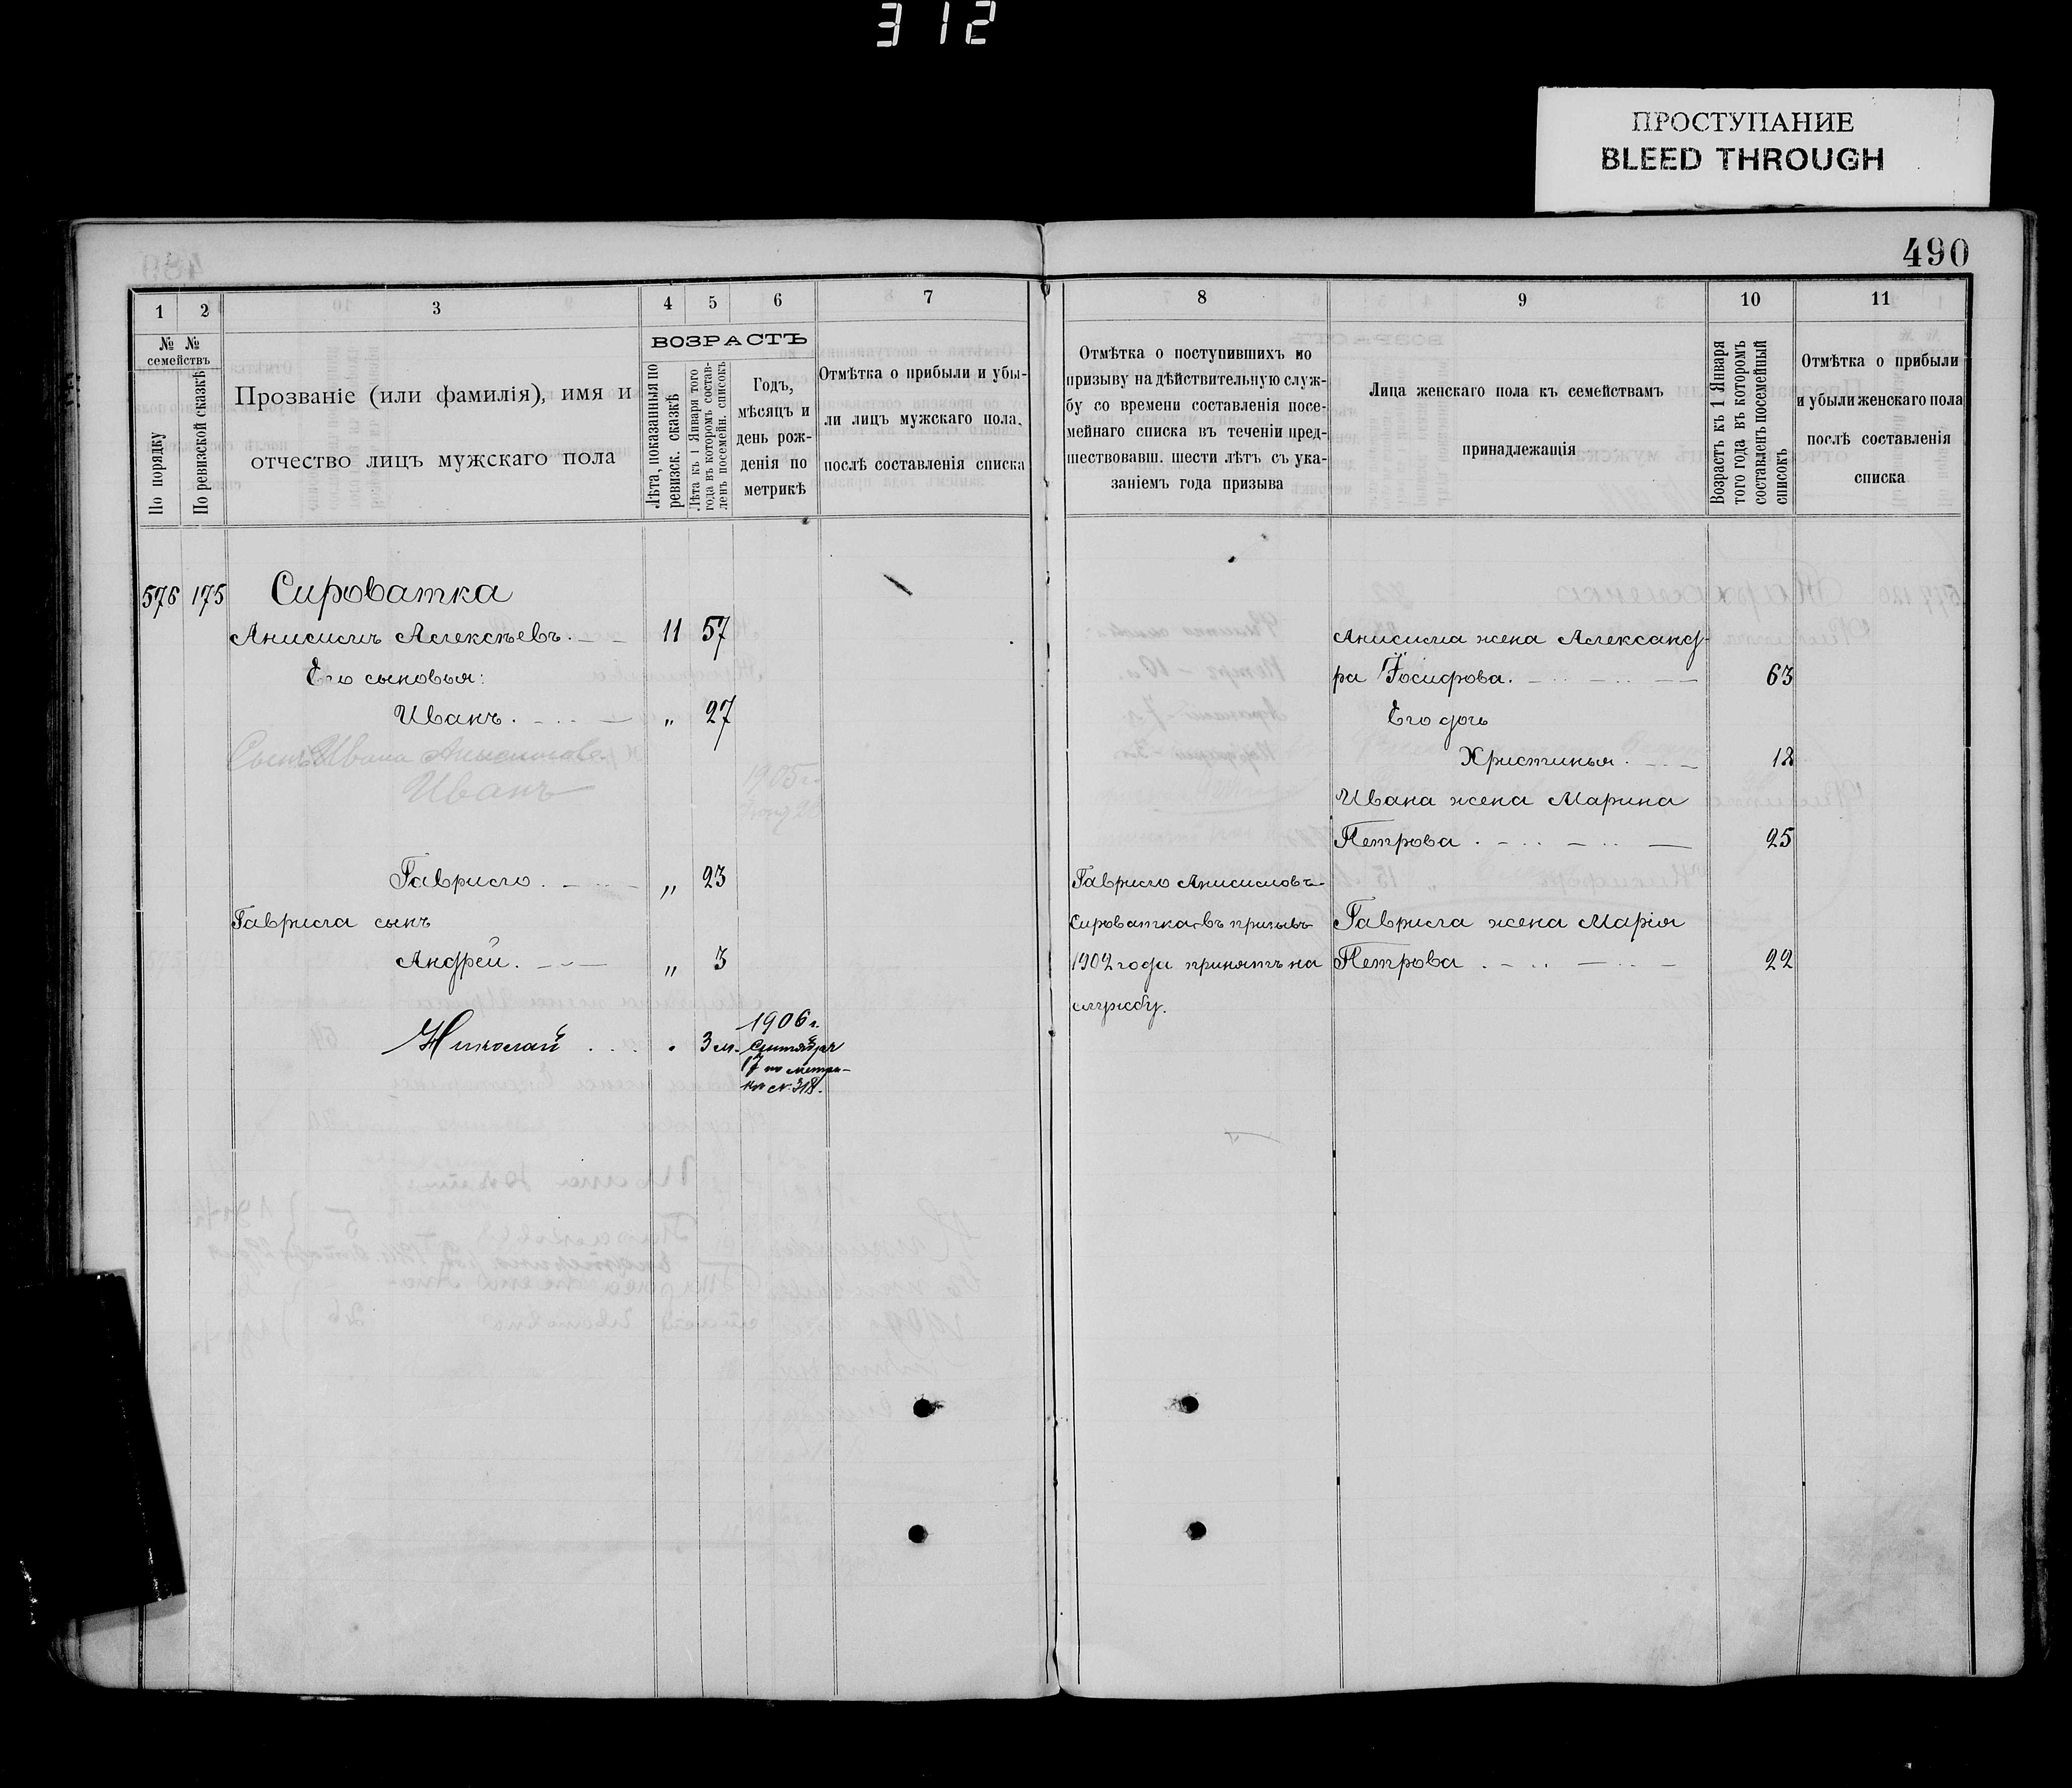 312
ПРОСТУПАНИЕ
BLEED THROUGH
490
1 2 3 4 5 6 7
№ № семействъ
По порядку
По ревизской сказкѣ
Прозваніе (или фамилія), имя и
отчество лицъ мужскаго пола
ВОЗРАСТЪ
Лѣта, показанныя по
ревизск. сказкѣ
Лѣта къ 1 Января того
года въ которомъ состав-
ленъ посемейн. списокъ
Годъ,
мѣсяцъ и
день рож-
денія по
метрикѣ
Отмѣтка о прибыли и убы-
ли лицъ мужскаго пола,
послѣ составленія списка
576 175 Сироватка
Анисимъ Алексѣевъ. 11 57
Его сыновья:
Иванъ. " 27
Сынъ Ивана Анисимова
Иванъ 1905 г.
20
Гавріилъ. " 23
Гавріила сынъ
Андрей. " 3
Николай 3 м. 1906 г.
Сентября
17 по метри-
кѣ № 318.
8 9 10 11
Отмѣтка о поступившихъ по
призыву на дѣйствительную служ-
бу со времени составленія посе-
мейнаго списка въ теченіи пред-
шествовавш. шести лѣтъ съ ука-
заніемъ года призыва
Лица женскаго пола къ семействамъ
принадлежащія
Возрастъ къ 1 Января
того года въ которомъ
составленъ посемейный
списокъ
Отмѣтка о прибыли
и убыли женскаго пола
послѣ составленія
списка
Анисима жена Александ-
ра Іосифова. 63
Его дочь
Христинья. 18
Ивана жена Марина
Петрова 25
Гавріилъ Анисимовъ
Сироватка въ призывъ
1902 года принятъ на
службу.
Гавріила жена Марія
Петрова 22